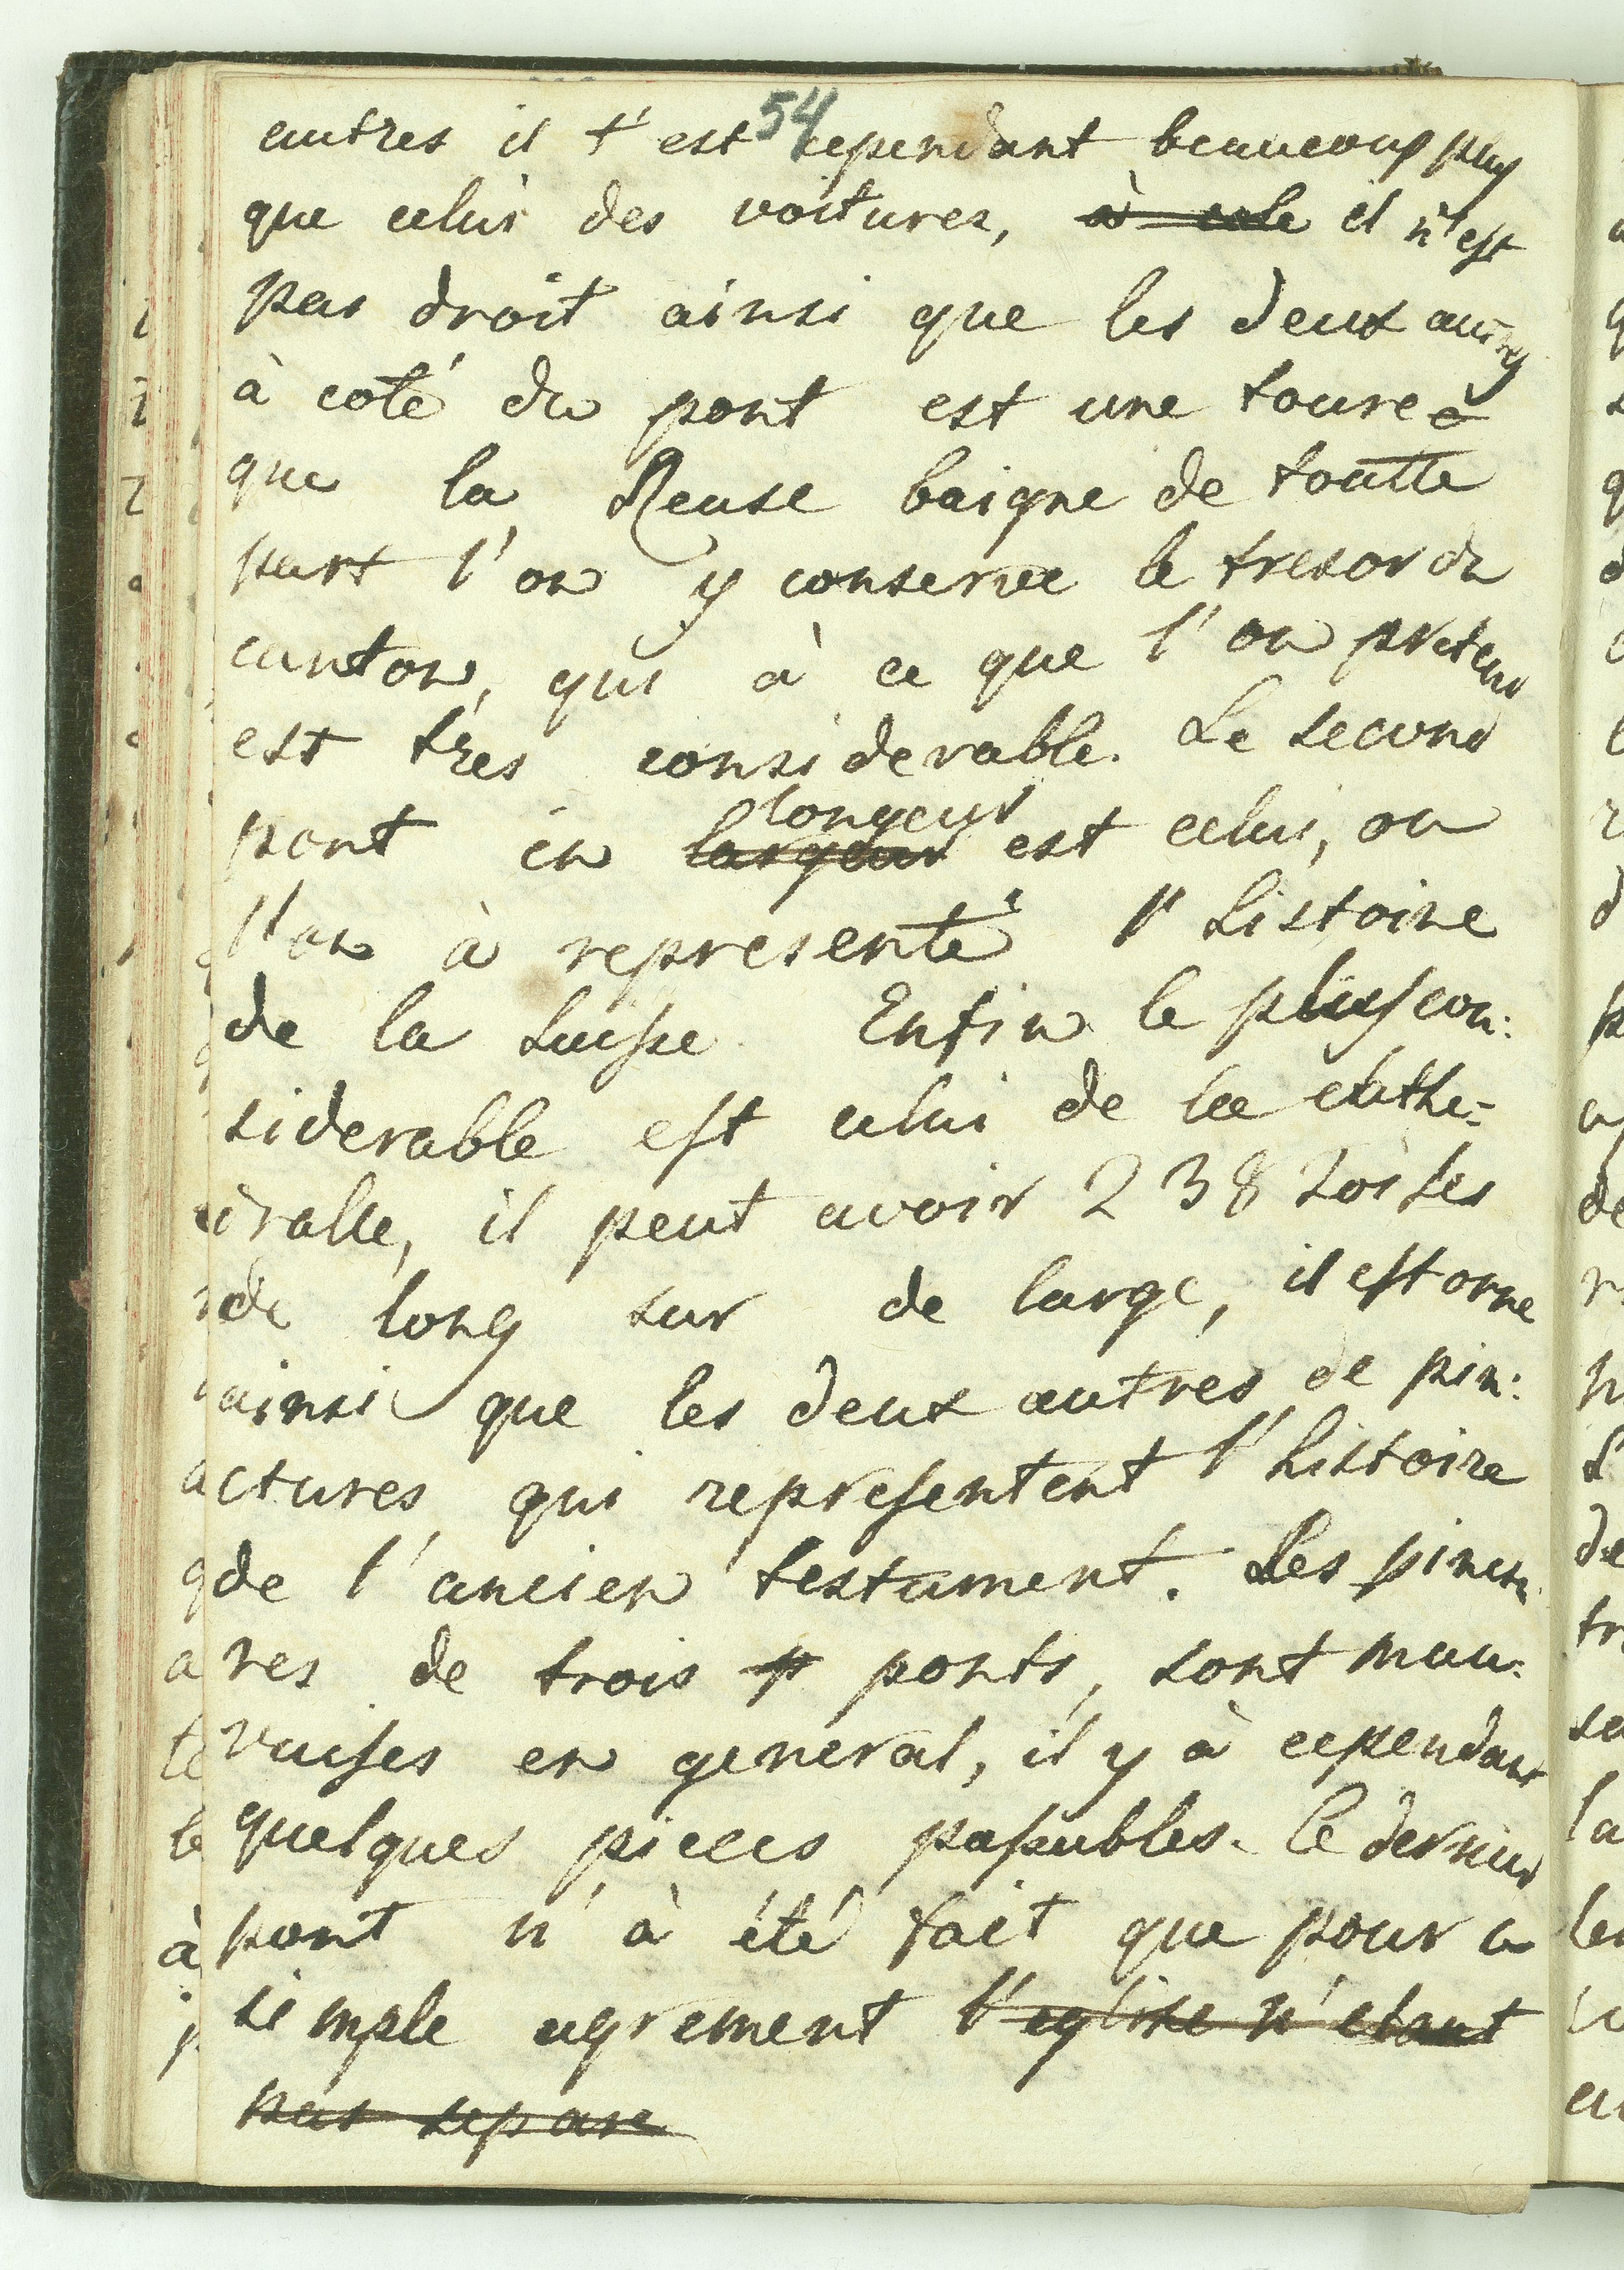 54
autres il t'est cependant beaucoup plus
que celui des voitures, à cote il n'est
pas droit ainsi que les deux autres
à coté du pont est une toure
que la Reuse baigne de toutte
part l'on y conserve le tresor du
canton, qui à ce que l'on pretend
est très considerable. Le second
longeur
pont en largeur est celui, ou
l'on à representé l'histoire
de la Suisse Enfin le plus con:
siderable est celui de la cathe=
dralle, il peut avoir 238 toises
de long sur de large, il est orne
ainsi que les deux autres de pin:
ctures qui representent l'histoire
de l'ancien testament. Les pinctu
res de trois p ponts, sont mau:
vaises en general, il y à cependant
quelques pieces passables. Ce dernier
pont n'à été fait que pour un
simple agrement l'eglise n'etant
pas separe